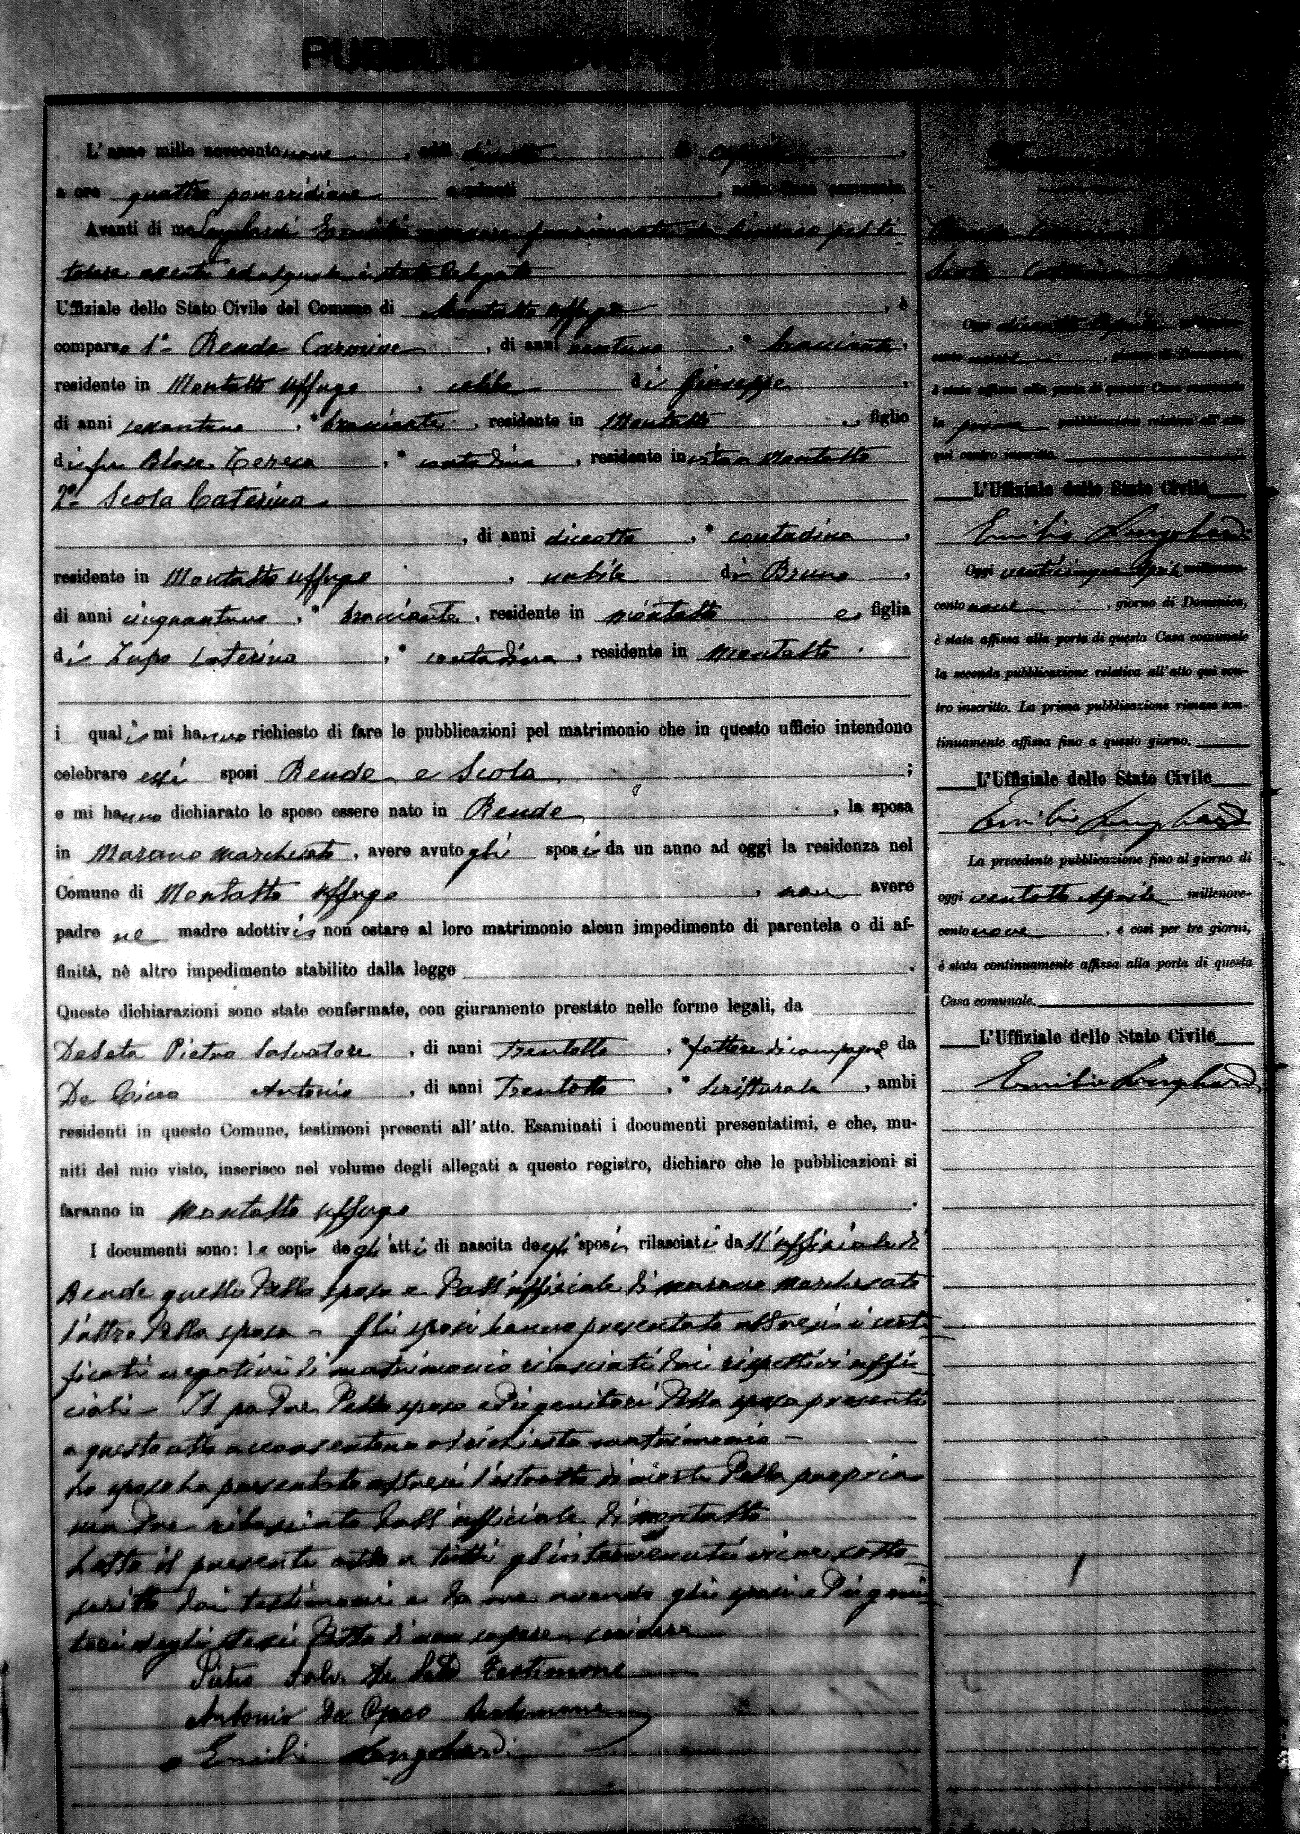 L'anno mille novecento nove, addì diciotto di Aprile,
a ore quattro pomeridiane e minuti, nella Casa comunale.
Avanti di me Longobardi Emilio
delegato
Uffiziale dello Stato Civile del Comune di Montalto Uffugo, è
comparso 1º Rende Carmine, di anni ventuno, bracciante
residente in Montalto Uffugo, celibe di Giuseppe,
di anni sessantuno, bracciante, residente in Montalto, figlio
di fu Blase Teresa, contadina, residente in Montalto
2º Scola Caterina
, di anni diciotto, contadina,
residente in Montalto Uffugo, nubile di Bruno,
di anni cinquantuno, bracciante, residente in Montalto e figlia
di Lupo Caterina, contadina, residente in Montalto.
i quali mi hanno richiesto di fare le pubblicazioni pel matrimonio che in questo ufficio intendono
celebrare essi sposi Rende e Scola;
e mi hanno dichiarato lo sposo essere nato in Rende, la sposa
in Marano Marchesato, avere avuto gli sposi da un anno ad oggi la residenza nel
Comune di Montalto Uffugo, non avere
padre nè madre adottivi e non ostare al loro matrimonio alcun impedimento di parentela o di af-
finità, nè altro impedimento stabilito dalla legge.
Queste dichiarazioni sono state confermate, con giuramento prestato nelle forme legali, da
DeSeta Pietro Salvatore, di anni trentotto, fattore di campagna e da
De Cicco Antonio, di anni trentotto, scritturale, ambi
residenti in questo Comune, testimoni presenti all'atto. Esaminati i documenti presentatimi, e che, mu-
niti del mio visto, inserisco nel volume degli allegati a questo registro, dichiaro che le pubblicazioni si
faranno in Montalto Uffugo.
I documenti sono: le copie degli atti di nascita degli sposi rilasciati dall'ufficiale di
Rende quello dello sposo e dall'ufficiale di Marano Marchesato
l'altro della sposa - Gli sposi hanno presentato altresì i certi-
ficati negativi di matrimonio rilasciati dai rispettivi uffi-
ciali - Il padre dello sposo e i genitori della sposa presenti
a questo atto acconsentono al richiesto matrimonio -
Lo sposo ha presentato altresì l'estratto di morte della propria
madre rilasciato dall'ufficiale di Montalto
Letto il presente atto a tutti gl'intervenuti viene sotto-
scritto dai testimoni e da me avendo gli sposi e i geni-
tori degli stessi detto di non sapere scrivere
Pietro Salv. De Seta testimone
Antonio De Cicco testimone
Emilio Longobardi
Rende Carmine
Scola Caterina
Oggi diciotto Aprile millenove-
cento nove, giorno di Domenica,
è stata affissa alla porta di questa Casa comunale
la prima pubblicazione relativa all'atto
qui contro inscritto.
L'Uffiziale dello Stato Civile
Emilio Longobardi
Oggi venticinque Aprile millenove-
cento nove, giorno di Domenica,
è stata affissa alla porta di questa Casa comunale
la seconda pubblicazione relativa all'atto qui con-
tro inscritto. La prima pubblicazione rimase con-
tinuamente affissa fino a questo giorno.
L'Uffiziale dello Stato Civile
Emilio Longobardi
La precedente pubblicazione fino al giorno di
oggi ventotto Aprile millenove-
cento nove, e così per tre giorni,
è stata continuamente affissa alla porta di questa
Casa comunale.
L'Uffiziale dello Stato Civile
Emilio Longobardi